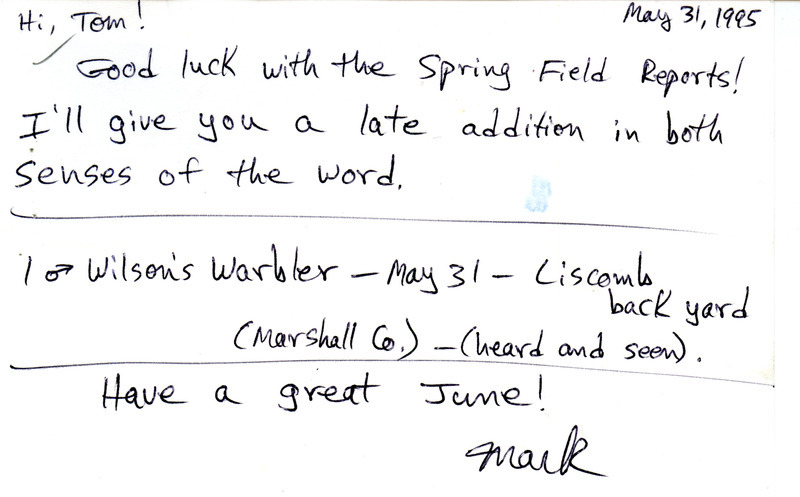 Hi, Tom!
May 31, 1995
Good luck with the Spring Field Reports!
I'll give you a late addition in both
senses of the word.
1 ♂ Wilson's Warbler – May 31 – Liscomb
back yard
(Marshall Co.) – (heard and seen).
Have a great June!
Mark